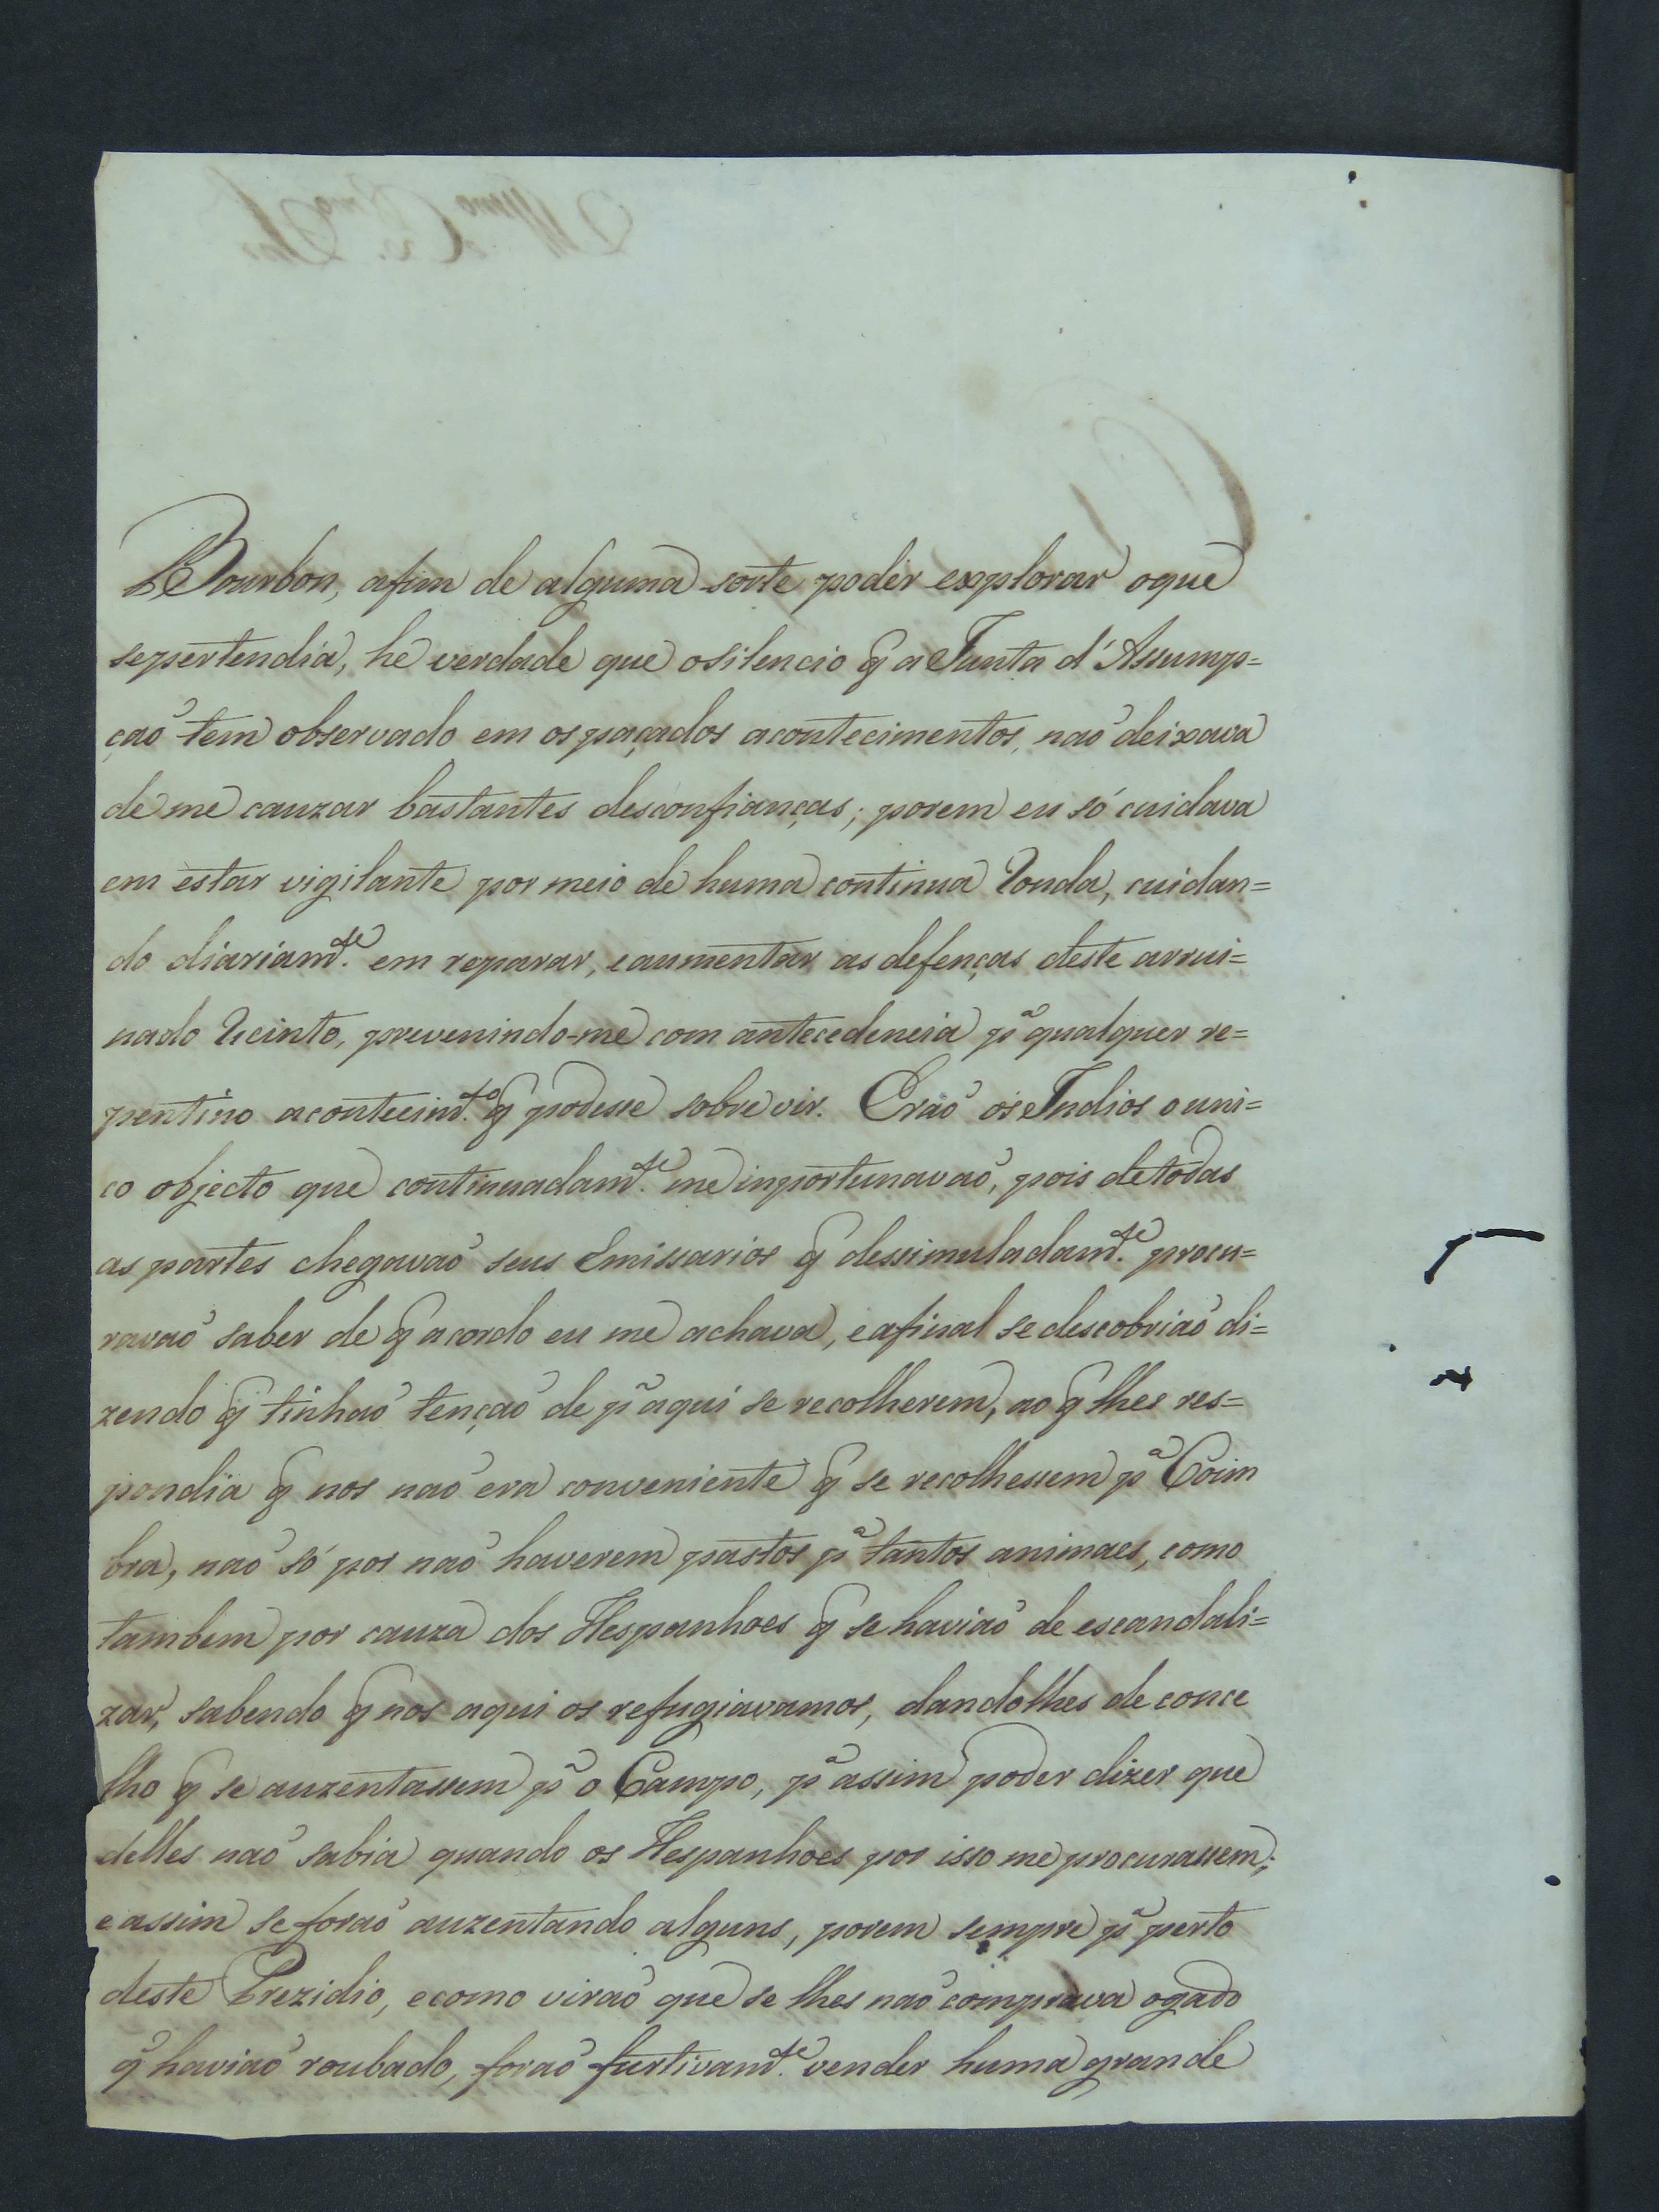 Bourbon, afim de alguma sorte poder explorar oque
sepertendia, he verdade que osilencio q̃ a Junta d'Assump=
çaõ tem observado em os paçados acontecimentos, naõ deixava
de me cauzar bastantes desconfianças; porem eu só cuidava
em estar vigilante por meio de huma continua Ronda, cuidan=
do diariamᵗᵉ. em reparar, eaumentar as defenças deste arrui=
nado Recinto, prevenindo-me com antecedencia pᵃ qualquer re=
pentino acontecimᵗᵒ. q̃ podesse sobrevir. Eraõ os Indios o uni=
co objecto que continuadamᵗᵉ. me inportunavaõ, pois detodas
as partes chegavaõ seus Emissarios q̃ dessimuladamᵗᵉ. procu=
ravaõ saber de q̃ acordo eu me achava, eafinal se descobriaõ di=
zendo q̃ tinhaõ tençaõ de pᵃ aqui se recolherem, ao q̃ lhes res=
pondia q̃ nos naõ era conveniente q̃ se recolhessem pᵃ Coim
bra, naõ só por naõ haverem pastos pᵃ tantos animaes, como
tambem por cauza dos Hespanhoes q̃ se haviaõ de escandali=
zar, sabendo q̃ nos aqui os refugiavamos, dandolhes de conce
lho q̃ se auzentassem pᵃ o Campo, pᵃ assim poder dizer que
delles naõ sabia quando os Hespanhoes por isso me procurassem;
eassim se foraõ auzentando alguns, porem sempre pᵃ perto
deste Prezidio, ecomo viraõ que se lhes naõ comprava ogado
q̃ haviaõ roubado, foraõ furtivamᵗᵉ. vender huma grande